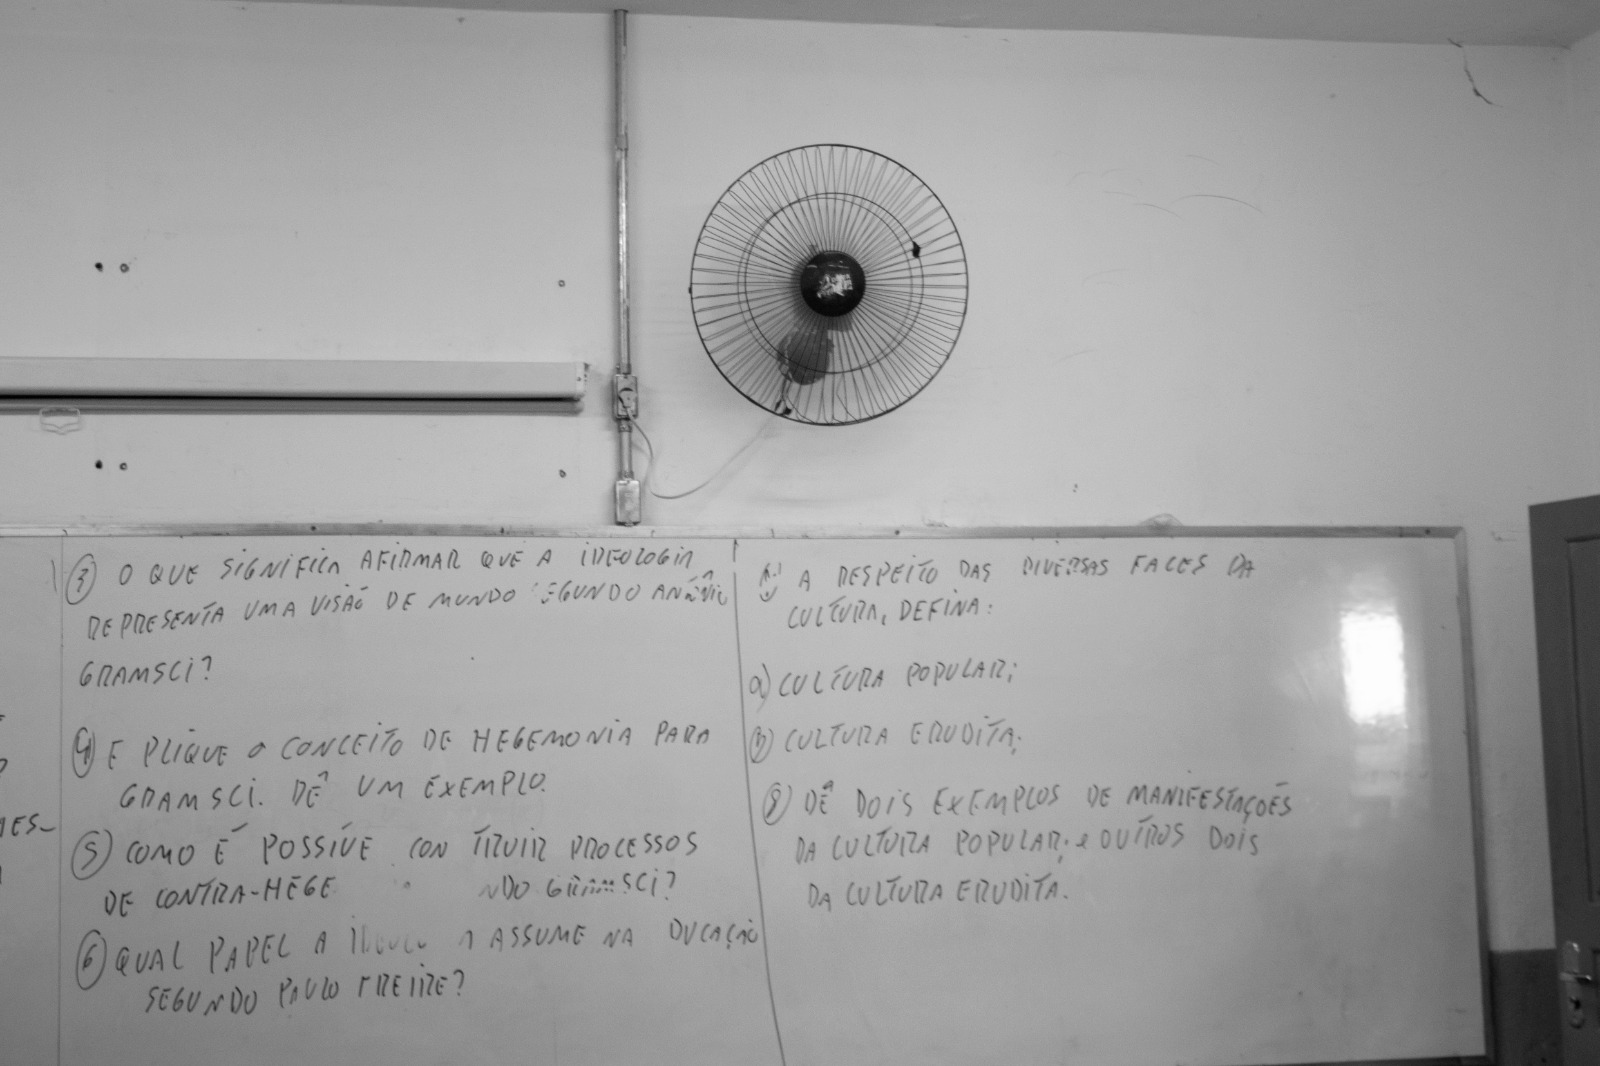 ES-
3) O QUE SIGNIFICA AFIRMAR QUE A IDEOLOGIA
REPRESENTA UMA VISÃO DE MUNDO EGUNDO ANTÔNIO
GRAMSCI?
4) E PLIQUE O CONCEITO DE HEGEMONIA PARA
GRAMSCI. DÊ UM EXEMPLO.
5) COMO É POSSÍVE CON TRUIR PROCESSOS
DE CONTRA-HEGE NDO GRAMSCI?
6) QUAL PAPEL A ASSUME NA DUCAÇÃO
SEGUNDO PAULO FREIRE?
A RESPEITO DAS DIVERSAS FACES DA
CULTURA, DEFINA:
a) CULTURA POPULAR;
b) CULTURA ERUDITA;
8) DÊ DOIS EXEMPLOS DE MANIFESTAÇÕES
DA CULTURA POPULAR; e OUTROS DOIS
DA CULTURA ERUDITA.